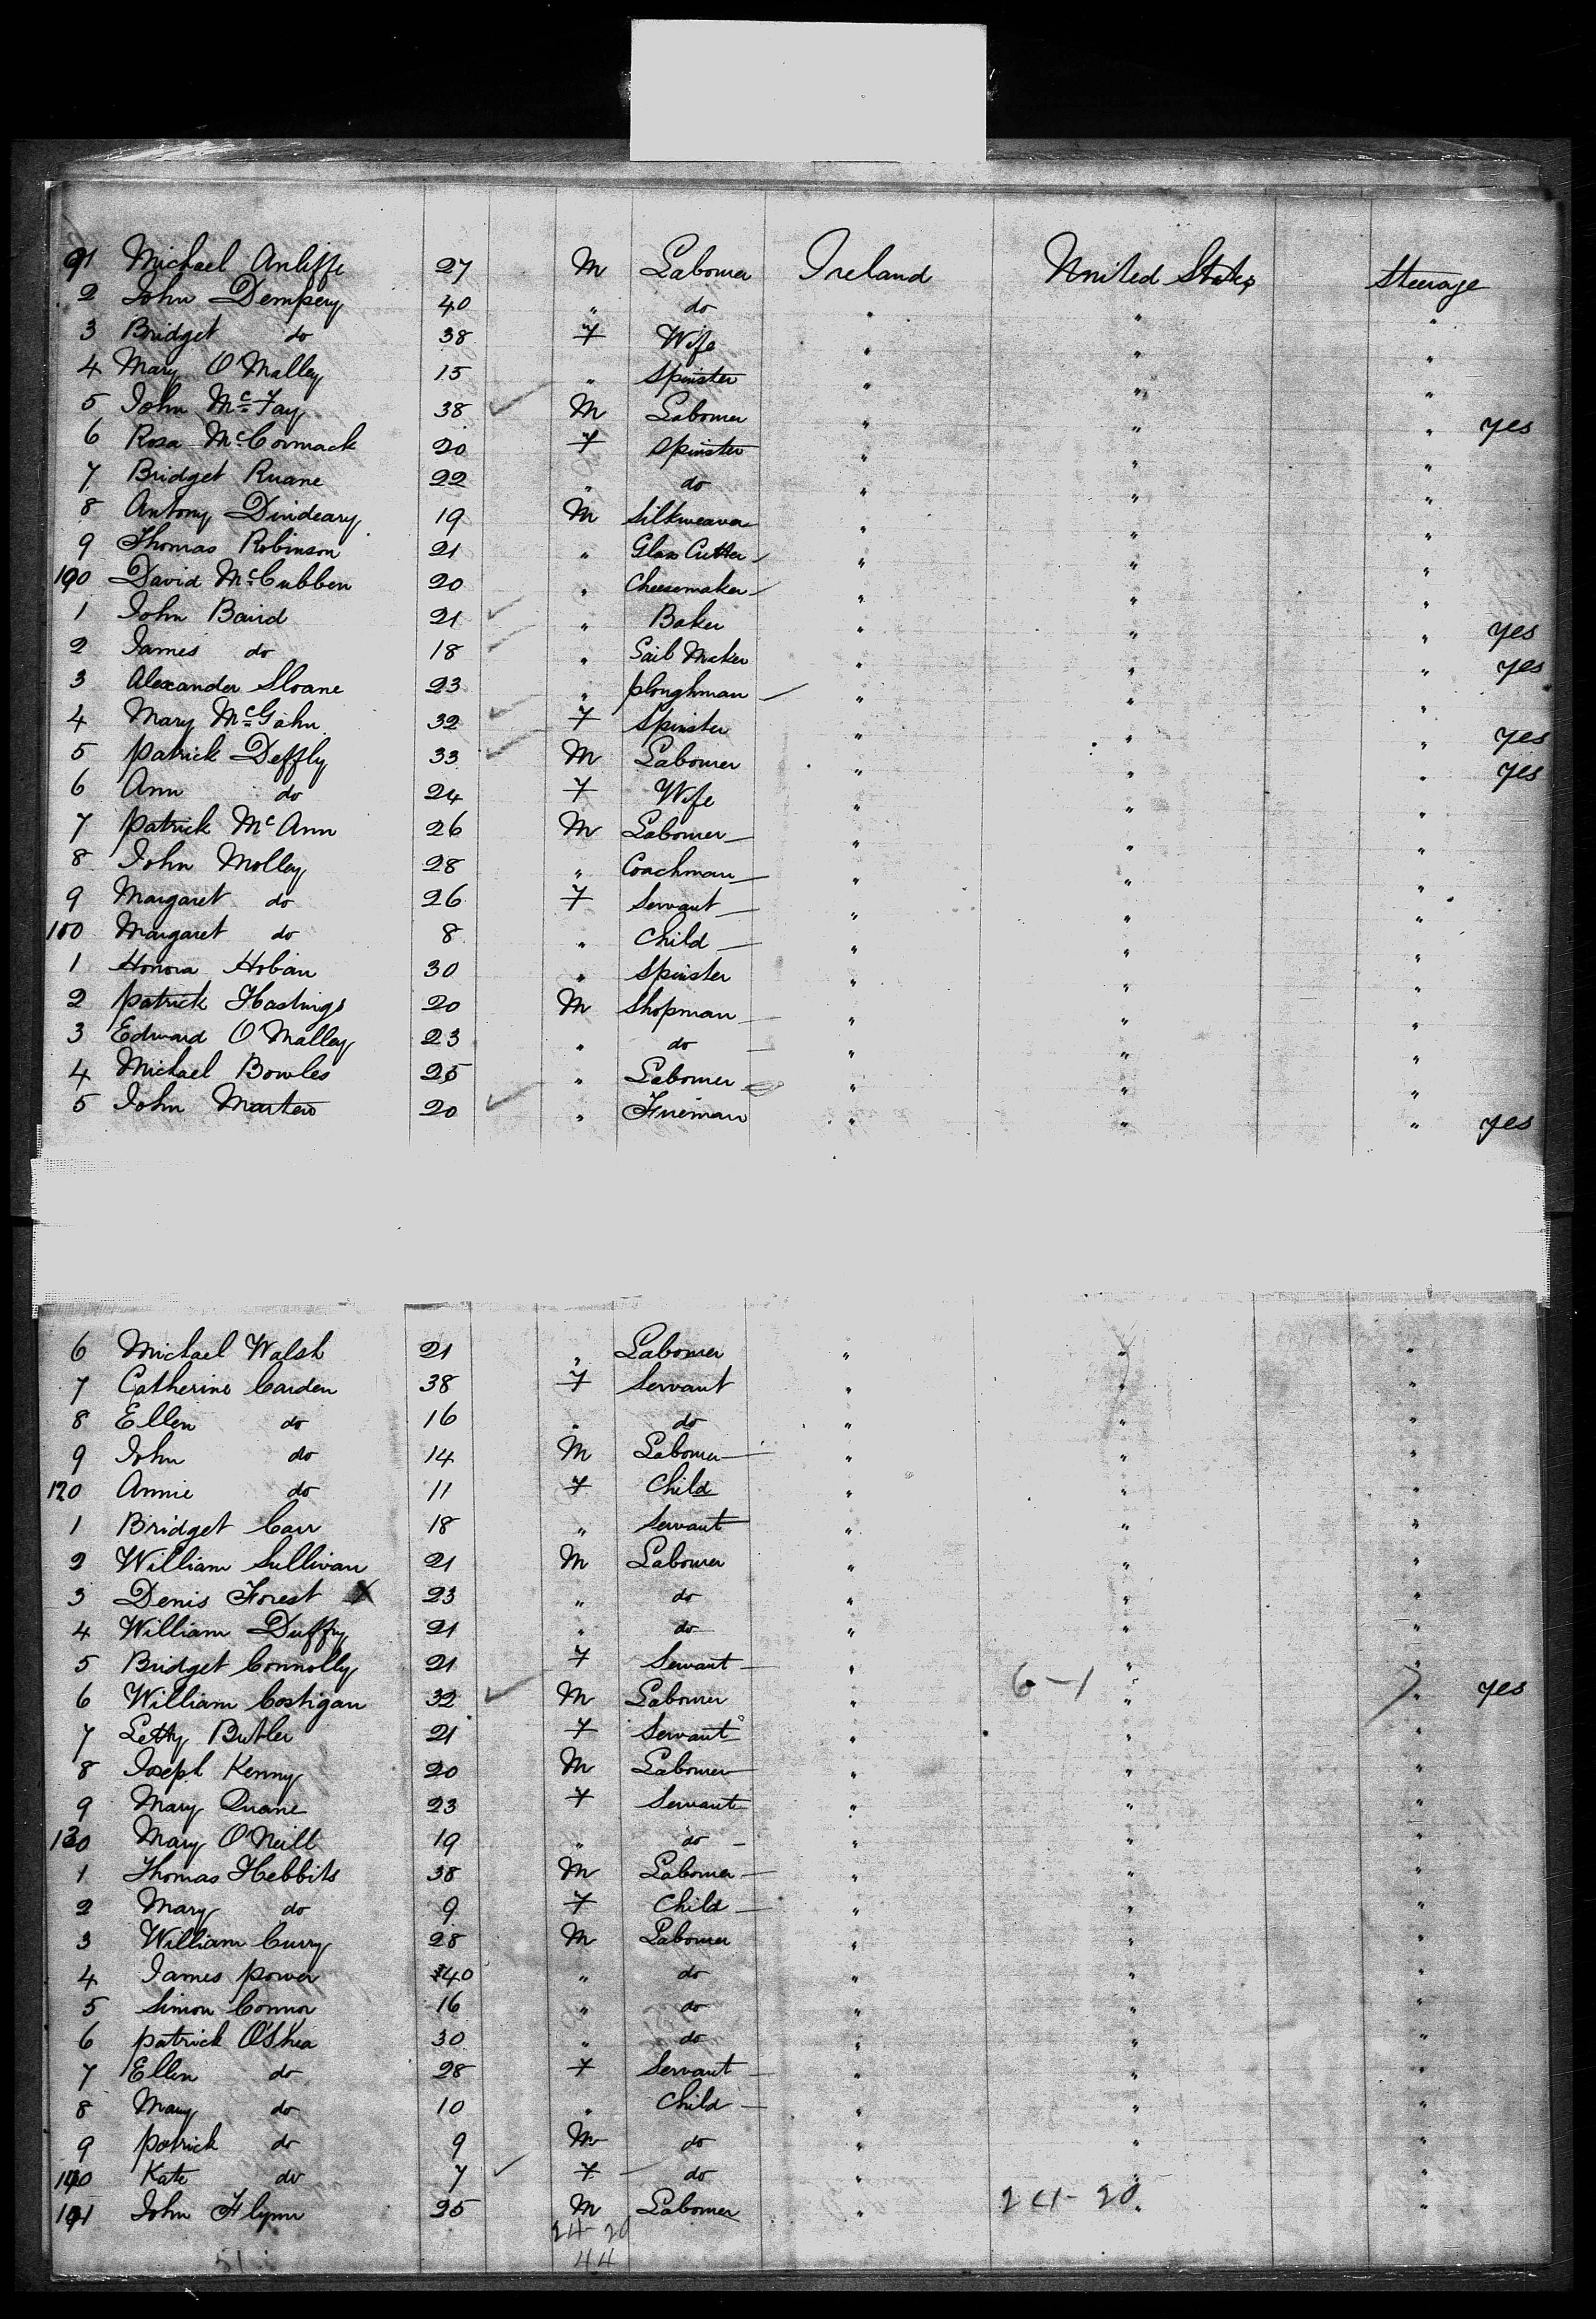 91 Michael Anliffe 27 M Labourer Ireland United States Steerage
2 John Dempsey 40 " do " " "
3 Bridget do 38 F Wife " " "
4 Mary O'Malley 15 " Spinster " " "
5 John Mc Fay 38 ✓ M Labourer " " " yes
6 Rosa McCormack 20 F Spinster " " "
7 Bridget Ruane 22 " do " " "
8 Antony Dindeary 19 M Silkweaver " " "
9 Thomas Robinson 21 " Glass Cutter " " "
100 David McCubben 20 " Cheesemaker " " "
1 John Baird 21 ✓ " Baker " " " yes
2 James do 18 ✓ " Sail Maker " " " yes
3 Alexander Sloane 23 " ploughman " " "
4 Mary McGahn 32 ✓ F Spinster " " " yes
5 patrick Deffly 33 ✓ M Labourer " " " yes
6 Ann do 24 F Wife " " "
7 patrick McAnn 26 M Labourer " " "
8 John Molley 28 " Coachman " " "
9 Margaret do 26 F Servant " " "
110 Margaret do 8 " Child " " "
1 Honora Hoban 30 " Spinster " " "
2 patrick Hastings 20 M Shopman " " "
3 Edward O'Malley 23 " do " " "
4 Michael Bowles 25 " Labourer " " "
5 John Marten 20 ✓ " Fireman " " " yes
6 Michael Walsh 21 " Labourer " " "
7 Catherine Carden 38 F Servant " " "
8 Ellen do 16 " do " " "
9 John do 14 M Labourer " " "
120 Annie do 11 F Child " " "
1 Bridget Carr 18 " Servant " " "
2 William Sullivan 21 M Labourer " " "
3 Denis Forest X 23 " do " " "
4 William Duffy 21 " do " " "
5 Bridget Connolly 21 F Servant " " "
6 William Costigan 32 ✓ M Labourer " 6-1 " " yes
7 Letty Butler 21 F Servant " " "
8 Joseph Kenny 20 M Labourer " " "
9 Mary Ruane 23 F Servant " " "
130 Mary O'Neill 19 " do " " "
1 Thomas Hebbits 38 M Labourer " " "
2 Mary do 9 F Child " " "
3 William Curry 28 M Labourer " " "
4 James power 40 " do " " "
5 Simon Connor 16 " do " " "
6 patrick O'Shea 30 " do " " "
7 Ellen do 28 F Servant " " "
8 Mary do 10 " Child " " "
9 patrick do 9 M do " " "
140 Kate do 7 ✓ F do " " "
141 John Flynn 25 M Labourer " 24-20 " "
24-20
51 44